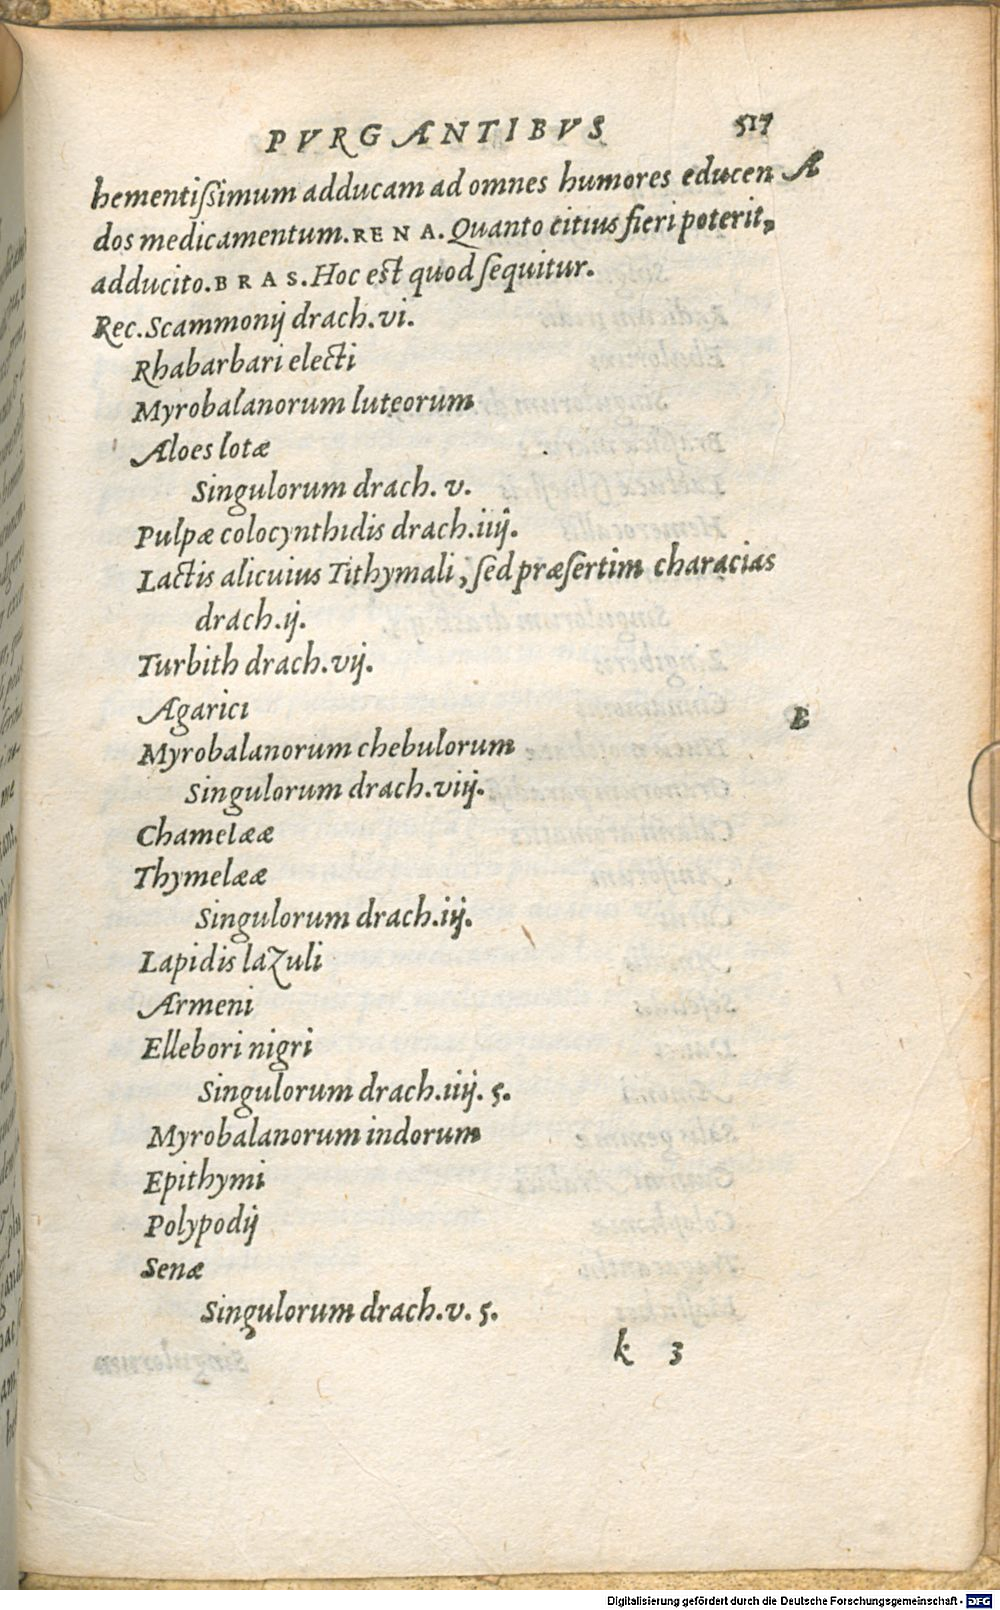 PVRGANTIBVS 517
hementißimum adducam ad omnes humores educen A
dos medicamentum. RENA. Quanto citius fieri poterit,
adducito. BRAS. Hoc est quod sequitur.
Rec. Scammonij drach. vi.
Rhabarbari electi
Myrobalanorum luteorum
Aloes lotæ
Singulorum drach. v.
Pulpæ colocynthidis drach. iiij.
Lactis alicuius Tithymali, sed præsertim characias
drach. ij.
Turbith drach. vij.
Agarici
B
Myrobalanorum chebulorum
Singulorum drach. viij.
Chamelææ
Thymelææ
Singulorum drach. iij.
Lapidis lazuli
Armeni
Ellebori nigri
Singulorum drach. iiij. 5.
Myrobalanorum indorum
Epithymi
Polypodij
Senæ
Singulorum drach. v. 5.
k 3
Digitalisierung gefördert durch die Deutsche Forschungsgemeinschaft - DFG